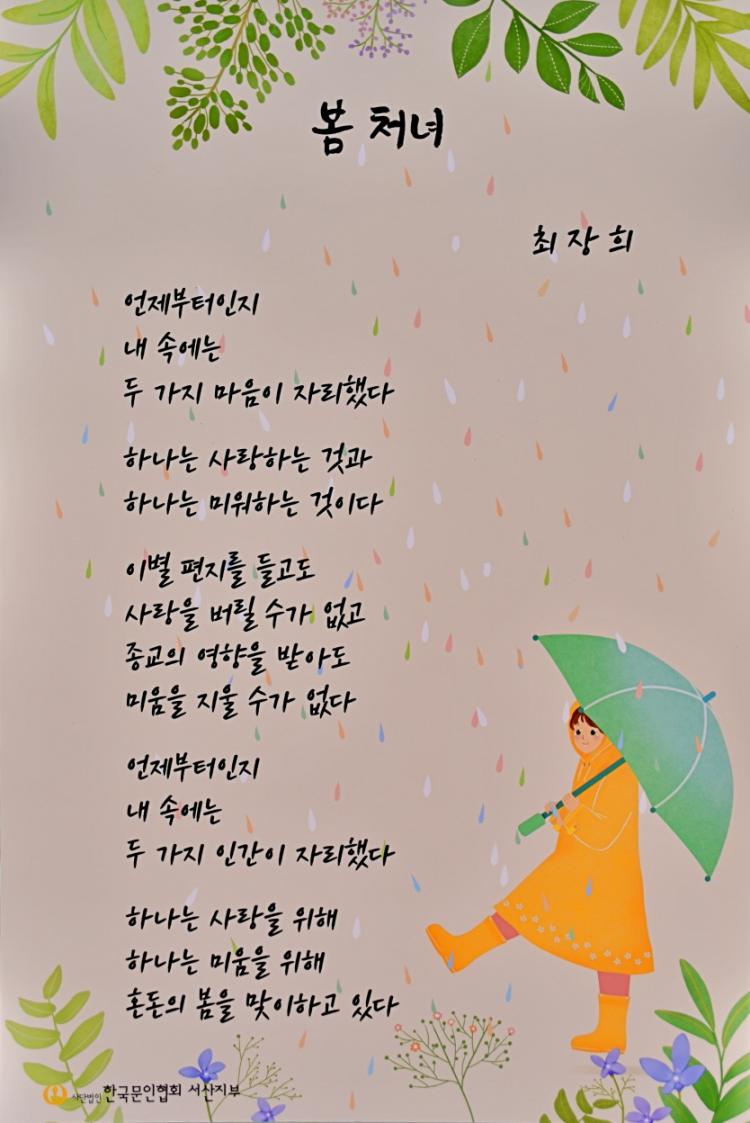 봄 처녀
최장희
언제부터인지
내 속에는
두 가지 마음이 자리했다
하나는 사랑하는 것과
하나는 미워하는 것이다
이별 편지를 들고도
사랑을 버릴 수가 없고
종교의 영향을 받아도
미움을 지울 수가 없다
언제부터인지
내 속에는
두 가지 인간이 자리했다
하나는 사랑을 위해
하나는 미움을 위해
혼돈의 봄을 맞이하고 있다
사단법인 한국문인협회 서산지부